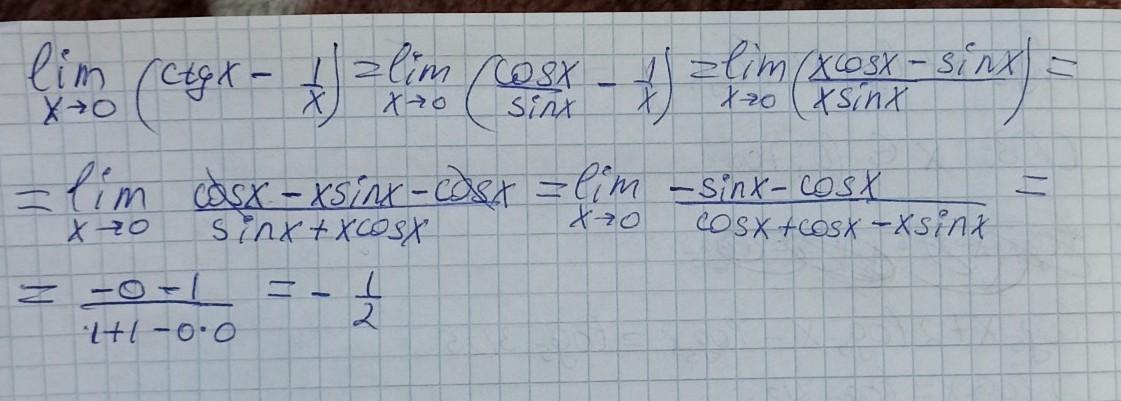 lim x→0 (ctgx - 1/x) = lim x→0 (cosx/sinx - 1/x) = lim x→0 (xcosx - sinx / xsinx) =
= lim x→0 cosx - xsinx - cosx / sinx + xcosx = lim x→0 -sinx - cosx / cosx + cosx - xsinx =
= -0 - 1 / 1 + 1 - 0·0 = - 1/2